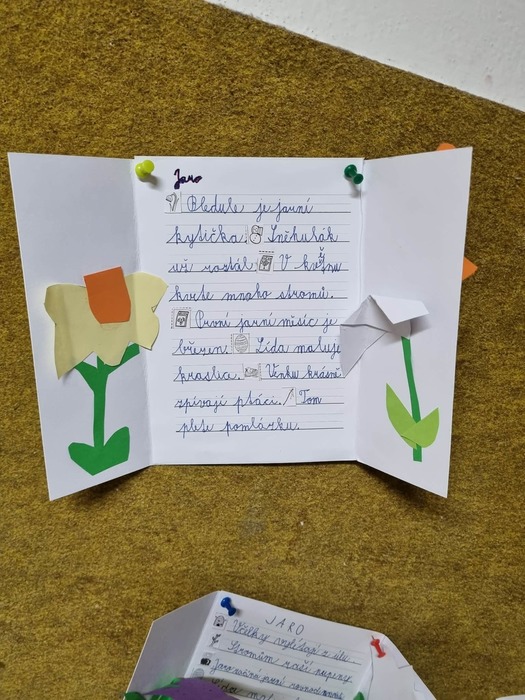 Jaro
Bledule je jarní
kytička. Sněhulák
už roztál. V květnu
kvete mnoho stromů.
První jarní měsíc je
březen. Lída maluje
kraslice. Venku krásně
zpívají ptáci. Tom
plete pomlázku.
JARO
Včelky vylétají z úlu.
Stromům raší pupeny.
Jaro začíná první